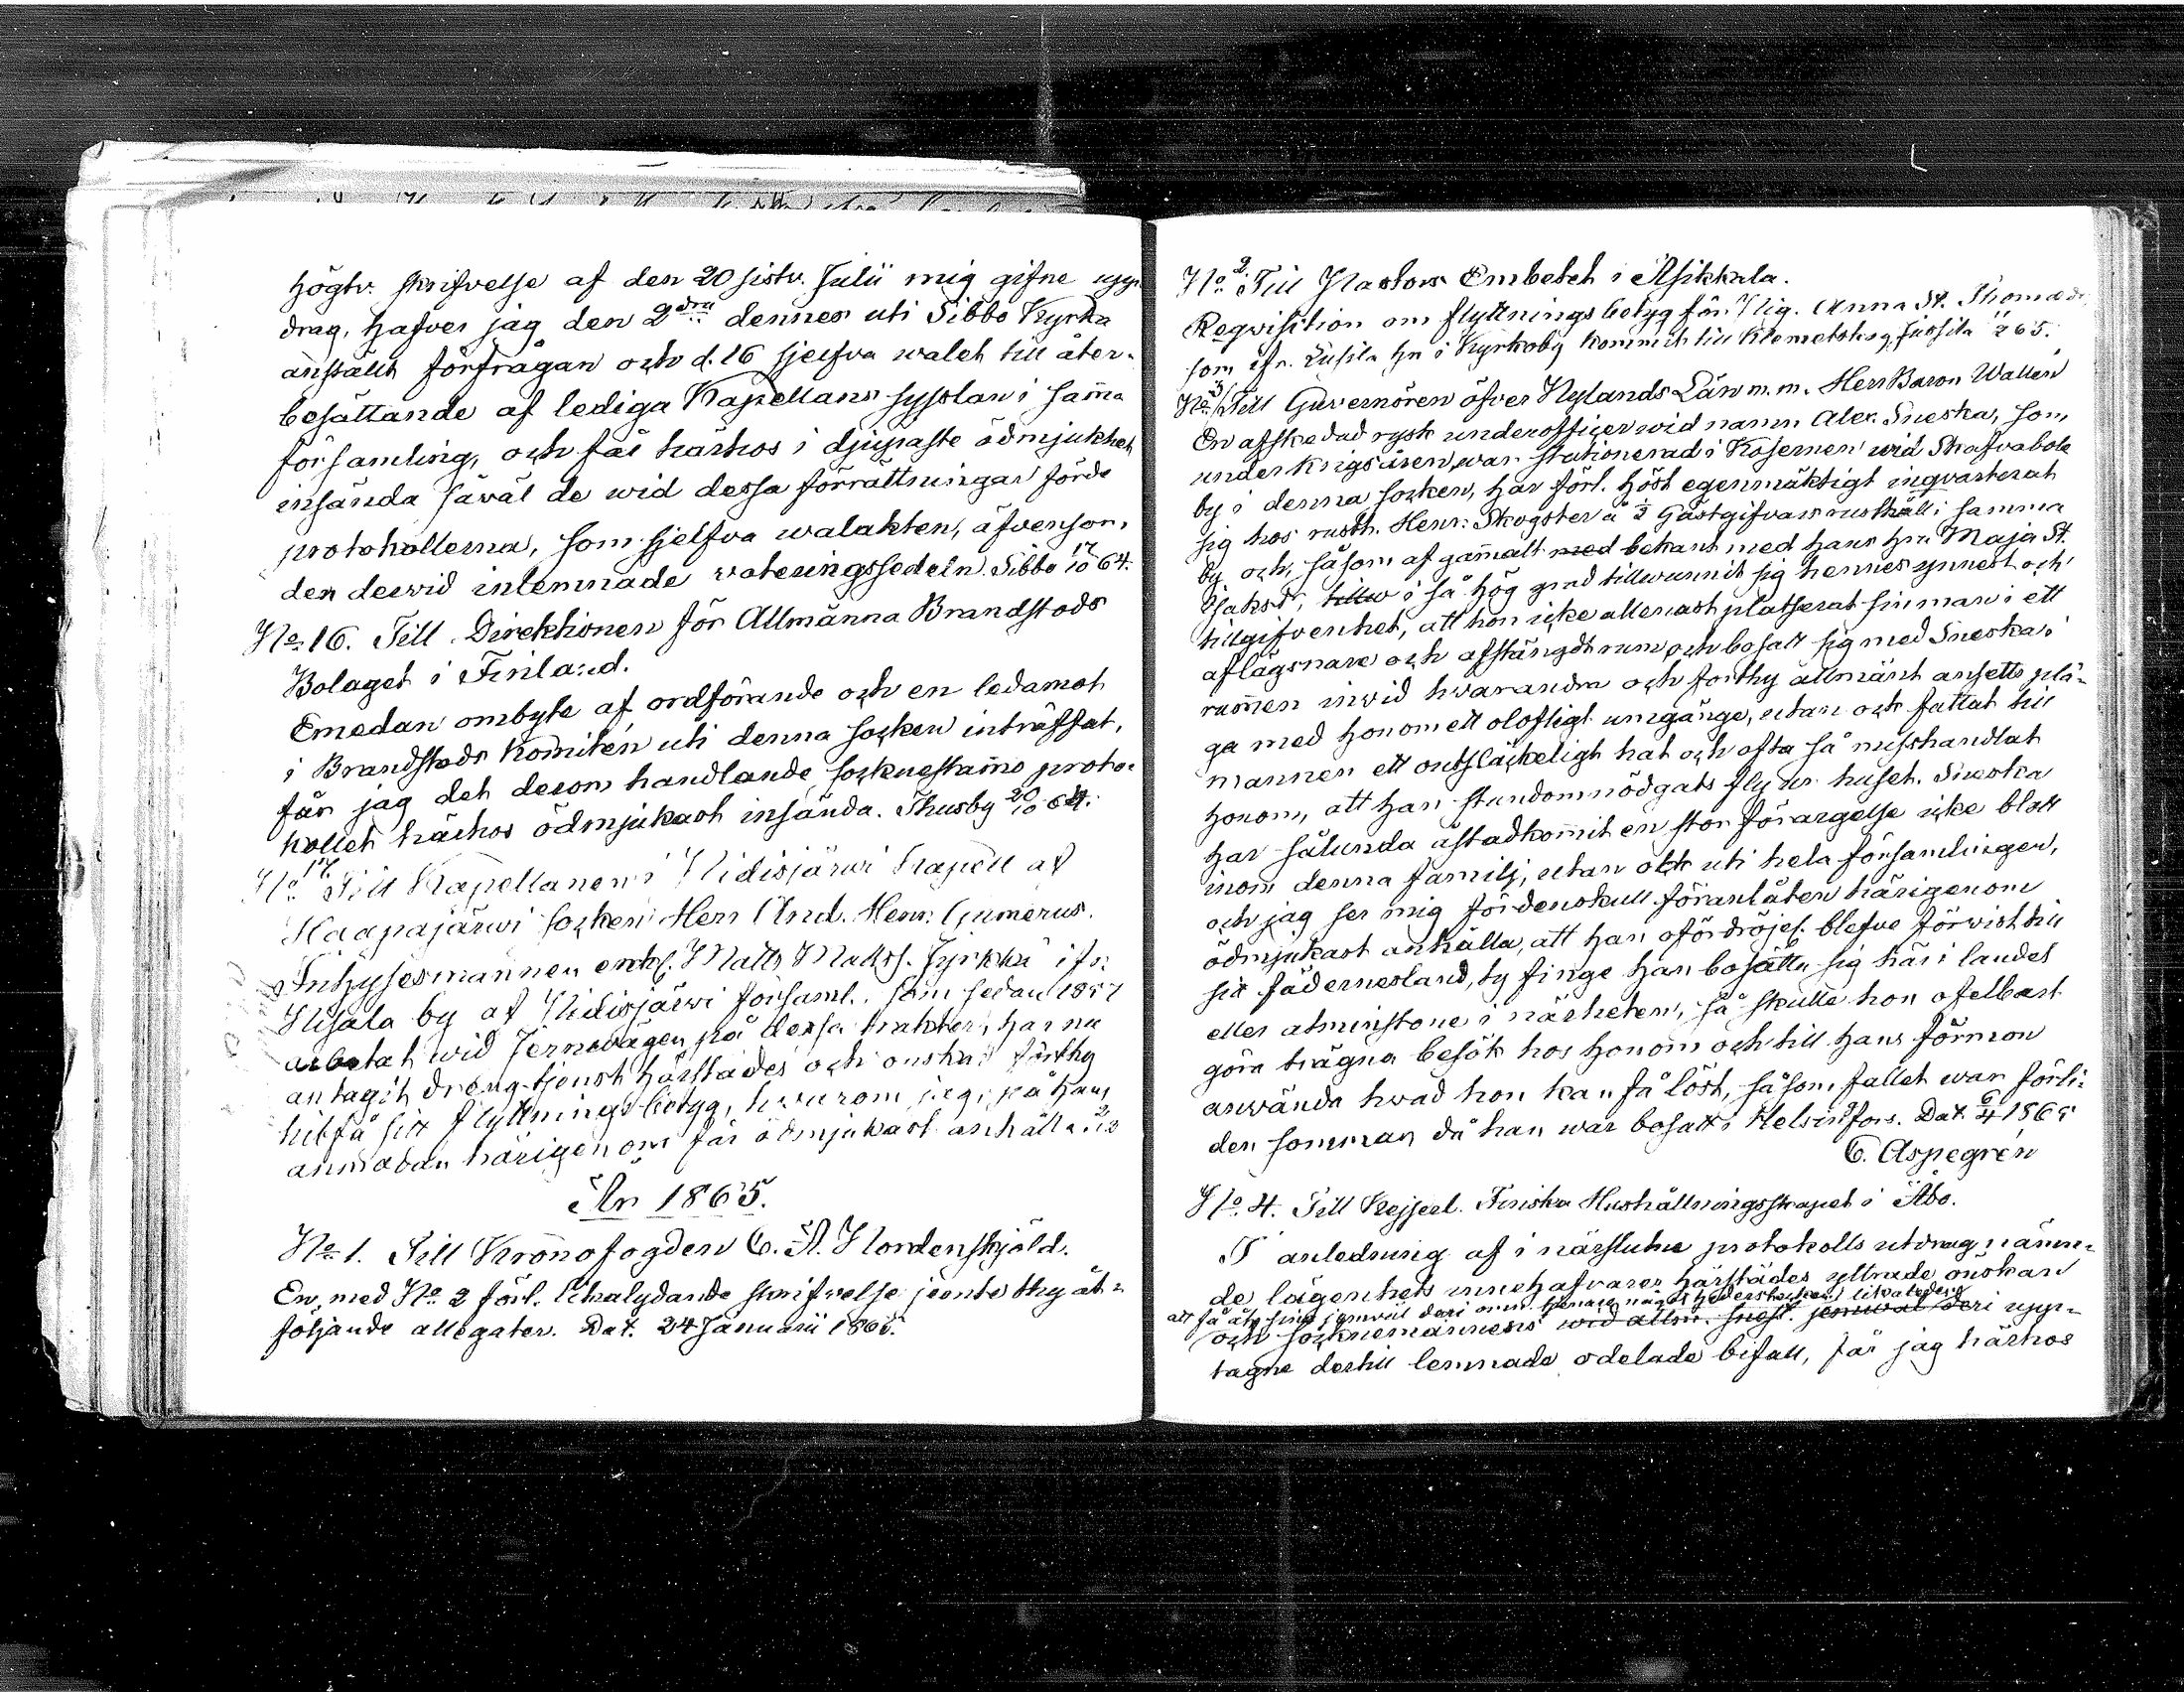 högtv. skrifvelse af den 20 sistv. Julii mig gifne upp
drag, hafver jag den 2dra dennes uti Sibbo Kyrka
anstält förfrågan och d. 16 sjelfva walet till åter-
besättande af lediga Kapellans sysslan i samma
församling, och får härhos i djupaste ödmjukhet
insända såwäl de wid dessa förrättningar förde
protokollerna, som sjelfva walakten, äfvensom
den derwid inlemnade voteringssedeln. Sibbo 17/10 64.
No 16. Till Direktionen för Allmänna Brandstods
Bolaget i Finland.
Emedan ombyte af ordförande och en ledamot
i Brandstods Komitén uti denna socken inträffat,
får jag det derom handlande sockenstämmo proto-
kollet härhos ödmjukast insända. Thusby 20/10 64.
No 17 Till Kapellanen i Nidisjärwi Kapell af
Haapajärwi socken Herr And. Henr. Gumerus.
Inhysesmannen enkl. Matts Matts. Jyrkkä ifr.
by af Nidisjärwi församl. som sedan 1857
arbetat wid Jernvägen på dessa trakter, har nu
antagit drengtjenst härstädes och önskar förthy
hitfå sitt flyttningsbetyg, hwarom jag på hans
anmodan härigenom får ödmjukast anhålla
År 1865.
No 1. Till Kronofogden C. A. Nordenskjöld.
En med No 2 förl. likalydande skrifvelse jemte thy åt-
följande allegater. Dat. 24 Januarii 1865.
No 2. Till Pastors Embetet i Asikkala.
Reqvisition om flyttningsbetyg för Pig. Anna St. Thomædr
som ifr. hn i Kyrkoby kommit till Klemetskog 65.
No 3/ Till Guvernören öfver Nylands Län m.m. Herr Baron Wallen
En afskedad rysk underofficer wid namn Alex. Sneska, som
under krigsåren war stationerad i Kasernen wid Skafvabole
by i denna socken, har förl. höst egenmäktigt inqvarterat
sig hos rusth. Henr: Skogster å ½ Gästgifvars rusthåll i samma
by och, såsom af gamalt med bekant med hans hru Maja St.
Isaksd, tillw i så hög grad tillwunnit sig hennes ynnest och
tillgifvenhet, att hon icke allenast platserat sin man i ett
aflägsnare och afstängdt rum, och bosatt sig med Sneska i
rummen inwid hwarandra och forthy allmänt ansetts plä-
ga med honom ett olofligt umgänge, utan och fattat till
mannen ett outsläckeligt hat och ofta så misshandlat
honom, att han stundom nödgats fly ur huset. Sneska
har sålunda åstadkommit en stor förargelse icke blott
inom denna familj, utan ock uti hela församlingen,
och jag ser mig fördenskull föranlåten härigenom
ödmjukast anhålla, att han ofördröjel. blefve förwist till
sitt fädernesland, ty finge han bosätta sig här i landet
eller atminstone i närheten, så skulle hon ofelbart
göra trägna besök hos honom och till hans förmon
anwända hwad hon kan få löst, såsom fallet war förli-
den sommar, då han war bosatt i Helsinfors. Dat. 6/4 1865
C. Aspegrén
No 4. Till Kejserl. Finska Hushållningssskapet i Åbo.
I anledning af i närslutne protokolls utdrag nämn-
de lägenhets innehafvares härstädes yttrade önskan
att få åt sina jemväl deri omn. tjenare heders
och sockenemännens wid allm. snest. jemwäl deri upp-
tagne dertill lemnade odelade bifall, får jag härhos